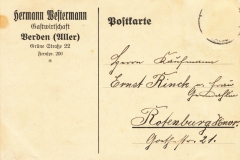 Hermann Westermann
Gastwirtschaft
Verden (Aller)
Große Straße 22
Fernspr. 260
Postkarte
Herrn Kaufmann
Ernst Rinck
Frau
Rotenburg Hannov.
Goethestr. 21.